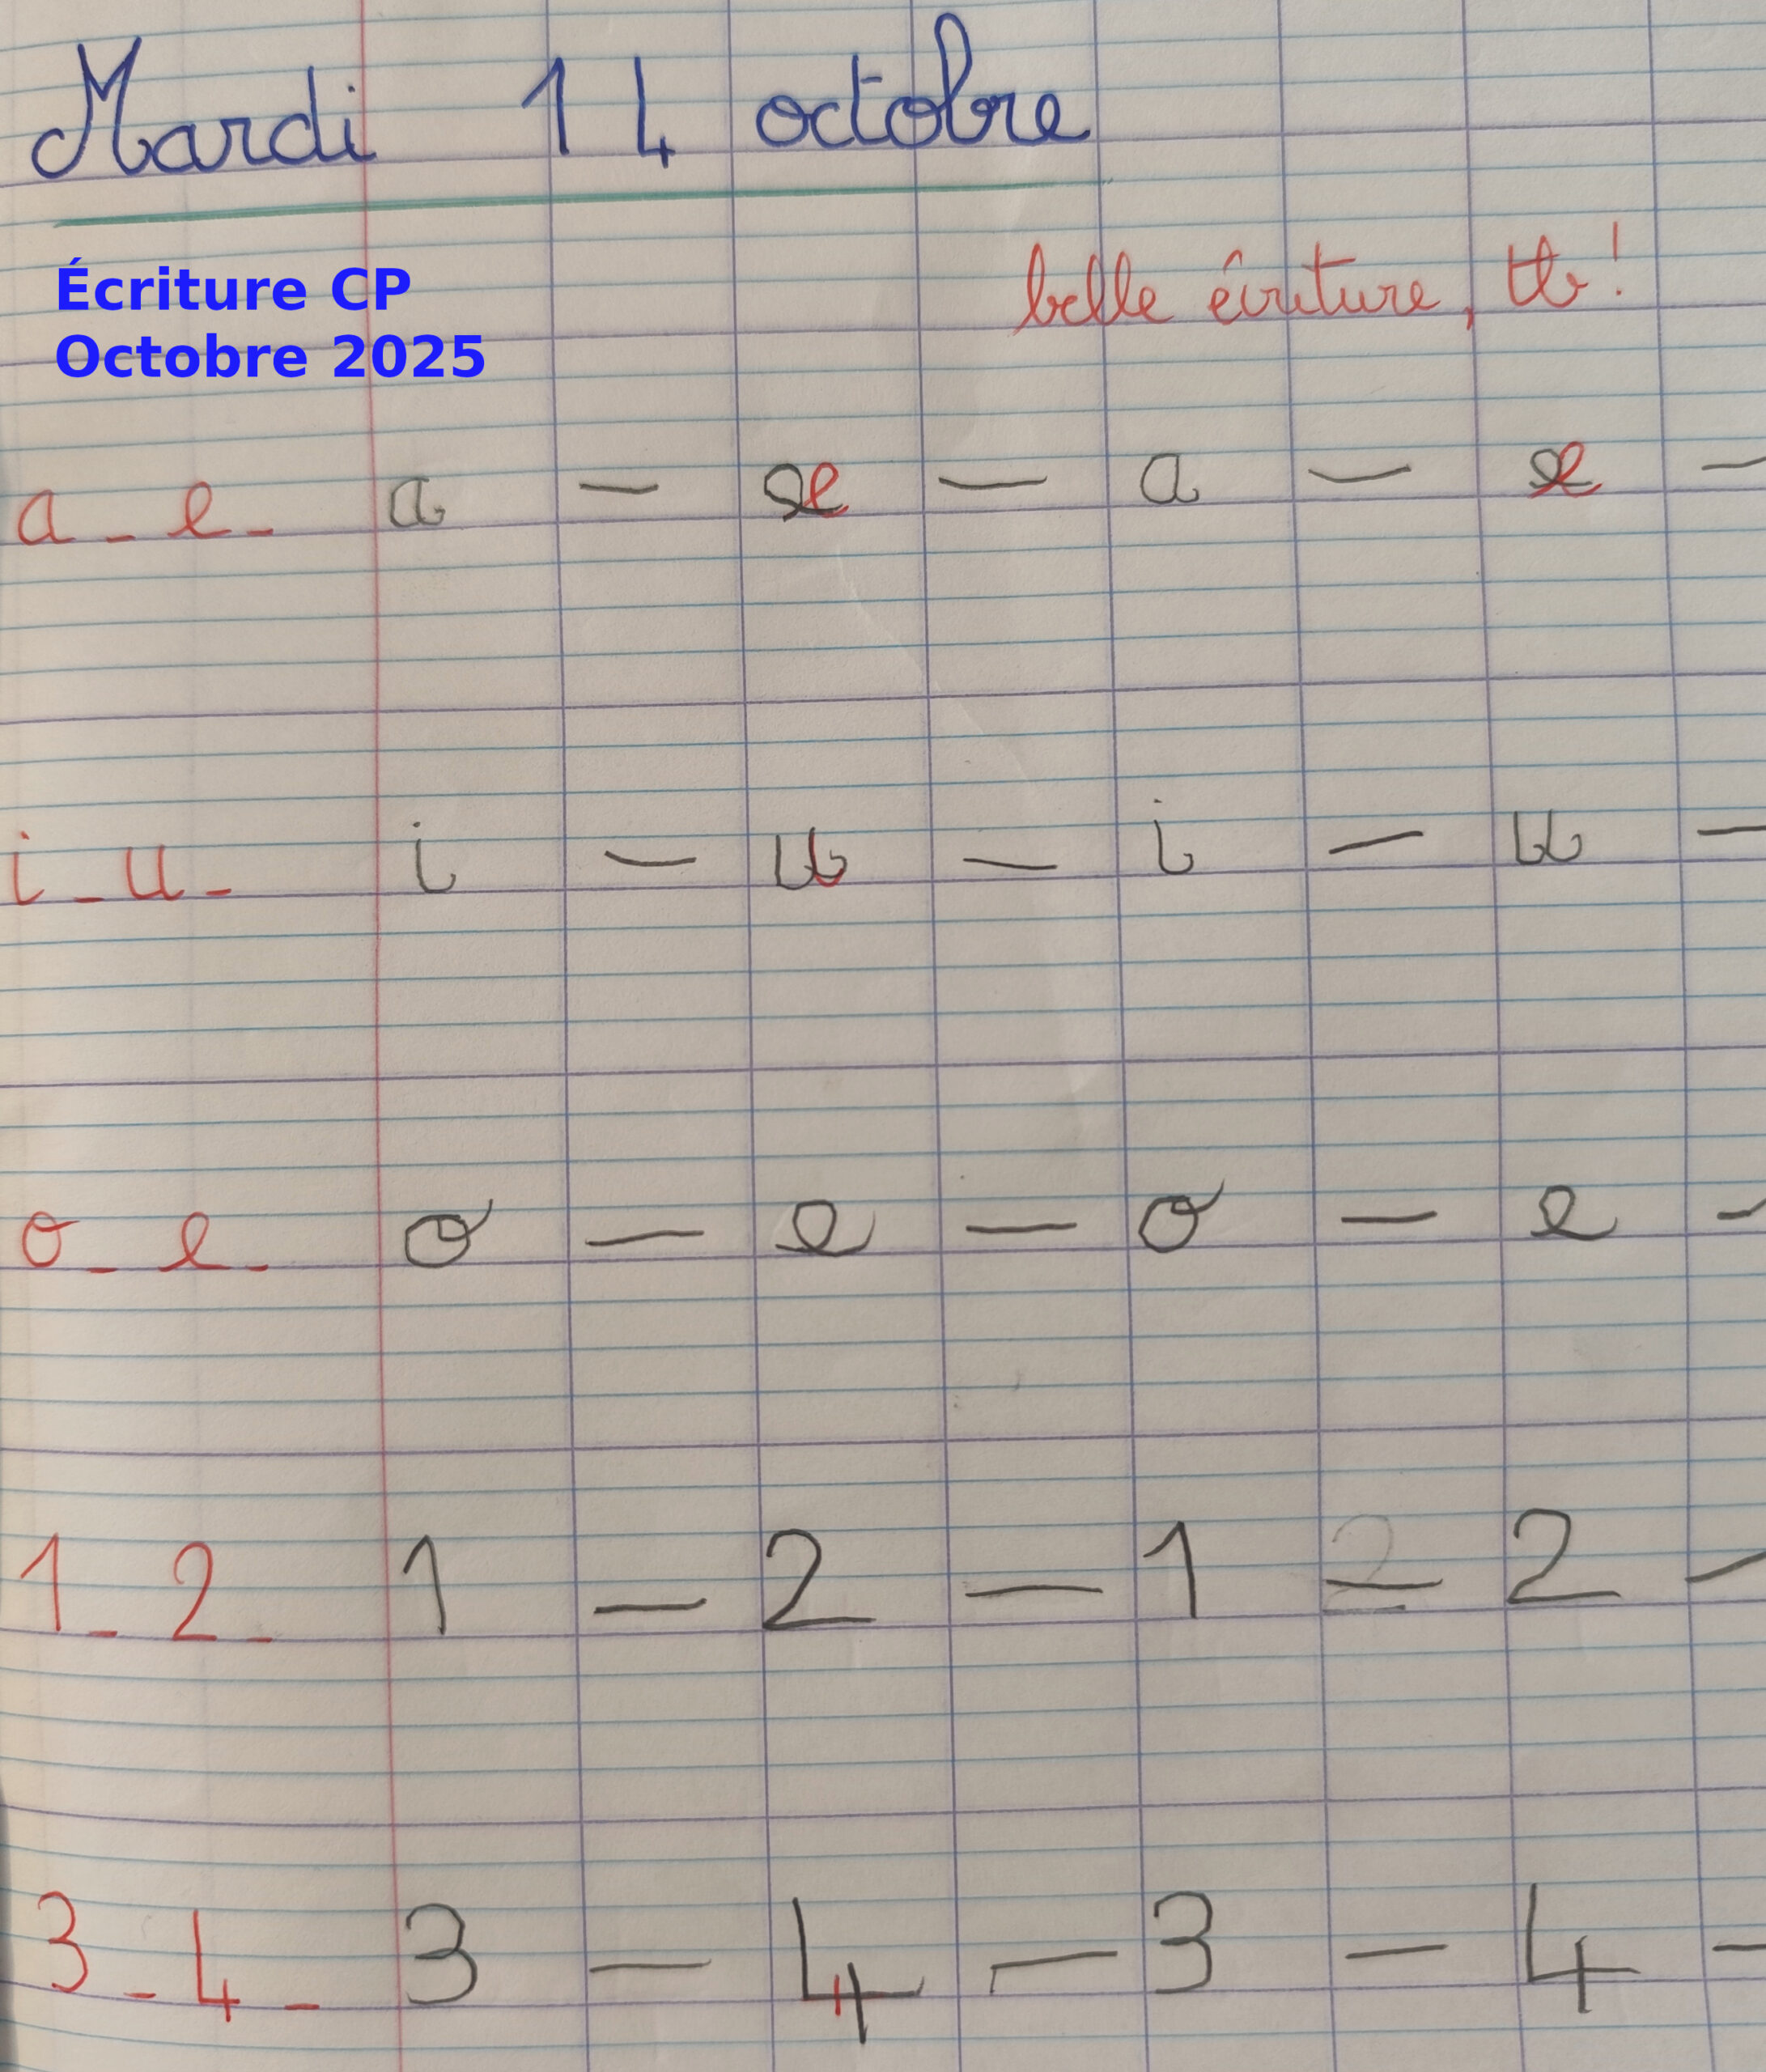 Mardi 14 octobre
Écriture CP
Octobre 2025
belle écriture, tb !
a - e - a - e - a - e -
i - u - i - u - i - u -
o - e - o - e - o - e -
1 - 2 - 1 - 2 - 1 - 2 -
3 - 4 - 3 - 4 - 3 - 4 -